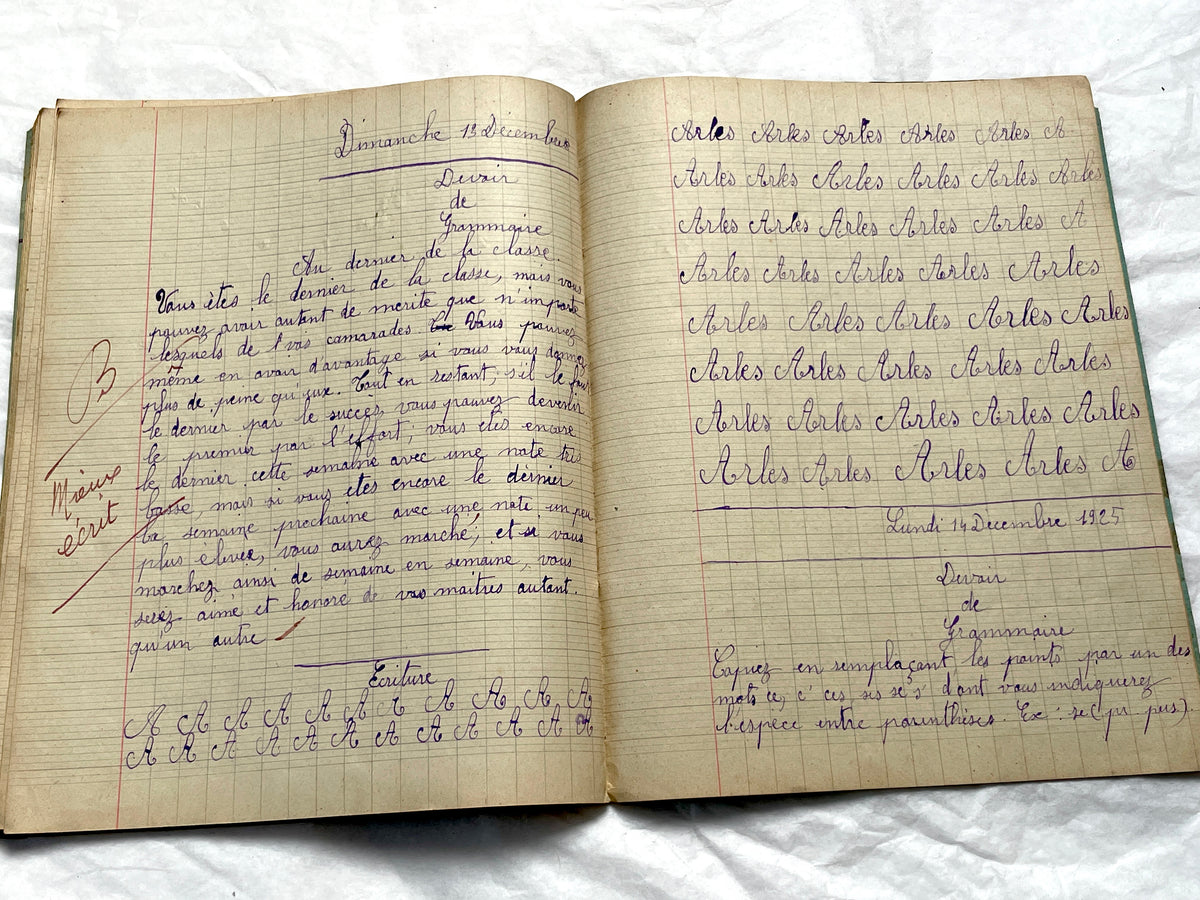 Dimanche 13 Décembre
Devoir
de
Grammaire
Au dernier de la classe.
Vous êtes le dernier de la classe, mais vous
pouvez avoir autant de mérite que n'importe
lesquels de vos camarades. Vous pouvez
même en avoir d'avantage si vous vous donnez
plus de peine qu'eux. Tout en restant, s'il le faut,
le dernier par le succès, vous pouvez devenir
le premier par l'effort; vous êtes encore
le dernier cette semaine avec une note très
basse, mais si vous êtes encore le dernier
la semaine prochaine avec une note un peu
plus elevée, vous aurez marché; et si vous
marchez ainsi de semaine en semaine, vous
serez aimé et honoré de vos maîtres autant.
qu'un autre
B
Mieux
écrit
Ecriture
A A A A A A A A A A A
A A A A A A A A A A A A
Arles Arles Arles Arles Arles A
Arles Arles Arles Arles Arles Arles
Arles Arles Arles Arles Arles A
Arles Arles Arles Arles Arles
Arles Arles Arles Arles Arles
Arles Arles Arles Arles Arles
Arles Arles Arles Arles Arles
Arles Arles Arles Arles A
Lundi 14 Décembre 1925
Devoir
de
Grammaire
Copiez en remplaçant les points par un des
mots ce, c' ces, ses se s' dont vous indiquerez
l'espèce entre parenthèses. Ex : se (pr. pers).